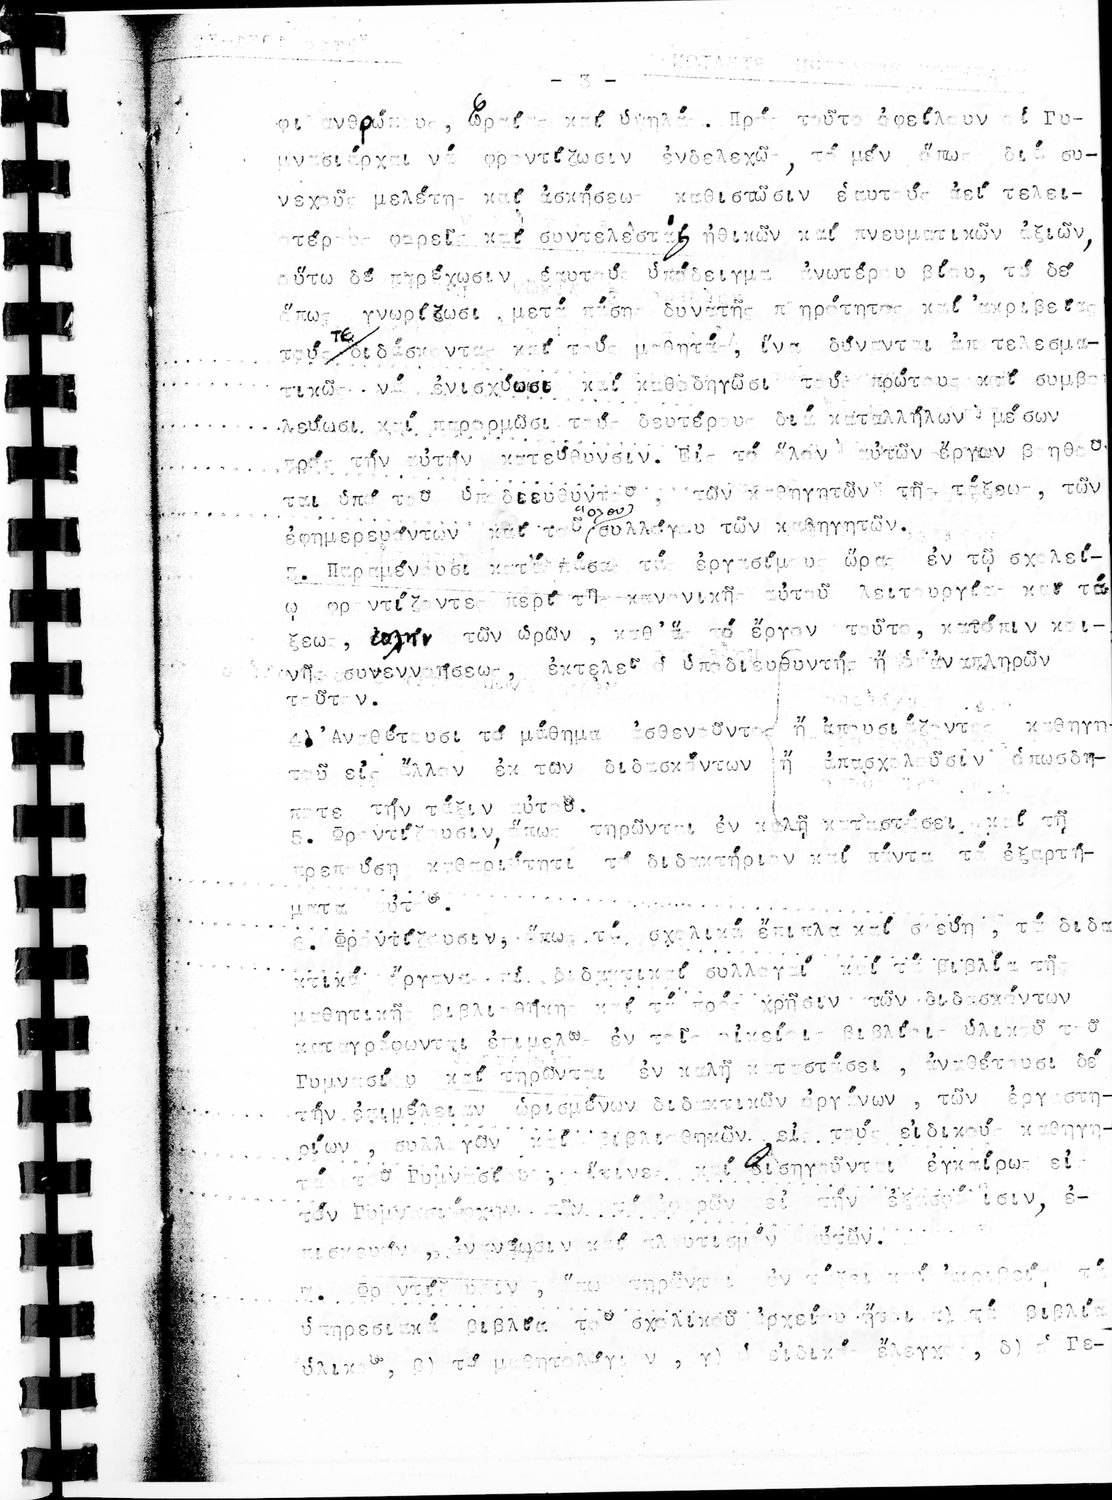 - 3 -
ἀνθρώπους, ὡραίας καί ὑψηλάς. Πρός τοῦτο ὀφείλουν οἱ Γυ-
μνασιάρχαι νά φροντίζωσιν ἐνδελεχῶς, τό μέν ὅπως διά συ-
νεχοῦς μελέτης καί ἀσκήσεως καθιστῶσιν ἑαυτούς ἀεί τελει-
οτέρους φορεῖς καί συντελεστάς ἠθικῶν καί πνευματικῶν ἀξιῶν,
οὕτω δέ παρέχωσιν ἑαυτούς ὑπόδειγμα ἀνωτέρου βίου, τό δέ
ὅπως γνωρίζωσι μετά πάσης δυνατῆς πληρότητος καί ἀκριβείας
τούς τε διδάσκοντας καί τούς μαθητάς, ἵνα δύνανται ἀποτελεσμα-
τικῶς νά ἐνισχύωσι καί καθοδηγῶσι τούς πρώτους καί συμβου
λεύωσι καί παρορμῶσι τούς δευτέρους διά καταλλήλων μέσων
πρός τήν αὐτήν κατεύθυνσιν. Εἰς τό ὅλον αὐτῶν ἔργον βοηθοῦν
ται ὑπό τοῦ ὑποδιευθυντοῦ, τῶν καθηγητῶν τῆς τάξεως, τῶν
ἐφημερευόντων καί τοῦ ὅλου συλλόγου τῶν καθηγητῶν.
Παραμένουσι κατά πάσας τάς ἐργασίμους ὥρας ἐν τῷ σχολεί-
ῳ φροντίζοντες περί τῆς κανονικῆς αὐτοῦ λειτουργίας καί τά
ξεως, τῶν ὡρῶν, καθ'ἅς τό ἔργον τοῦτο, κατόπιν κοι-
νῆς συνεννοήσεως, ἐκτελεῖ ὁ ὑποδιευθυντής ἤ ὁ ἀναπληρῶν
τοῦτον.
4) Ἀναθέτουσι τό μάθημα ἀσθενοῦντος ἤ ἀπουσιάζοντος καθηγη-
τοῦ εἰς ἄλλον ἐκ τῶν διδασκόντων ἤ ἀπασχολοῦσιν ὁπωσδή-
ποτε τήν τάξιν αὐτοῦ.
5. Φροντίζουσιν, ὅπως τηρῶνται ἐν καλῇ καταστάσει καί τῇ
πρεπούσῃ καθαριότητι τό διδακτήριον καί πάντα τά ἐξαρτή-
ματα αὐτοῦ.
6. Φροντίζουσιν, ὅπως τά σχολικά ἔπιπλα καί σκεύη, τά διδα
κτικά ὄργανα αἱ διδακτικαί συλλογαί καί τά βιβλία τῆς
μαθητικῆς βιβλιοθήκης καί τά πρός χρῆσιν τῶν διδασκόντων
καταγράφωνται ἐπιμελῶς ἐν τοῖς οἰκείοις βιβλίοις ὑλικοῦ τοῦ
Γυμνασίου καί τηρῶνται ἐν καλῇ καταστάσει, ἀναθέτουσι δέ
τήν ἐπιμέλειαν ὡρισμένων διδακτικῶν ὀργάνων, τῶν ἐργαστη-
ρίων, συλλογῶν καί βιβλιοθηκῶν, εἰς τούς εἰδικούς καθηγη-
τάς τοῦ Γυμνασίου, οἵτινες καί εἰσηγοῦνται ἐγκαίρως εἰς
τόν Γυμνασιάρχην πᾶν τό ἀφορῶν εἰς τήν ἐξασφάλισιν, ἐ-
πισκευήν, ἀνανέωσιν καί πλουτισμόν αὐτῶν.
Φροντίζουσιν, ὅπως τηρῶνται ἐν τάξει καί ἀκριβείᾳ τά
ὑπηρεσιακά βιβλία τοῦ σχολικοῦ ἀρχείου ἤτοι α) τά βιβλία
ὑλικοῦ, β) τό μαθητολόγιον, γ) ὁ εἰδικός ἔλεγχος, δ) ὁ Γε-